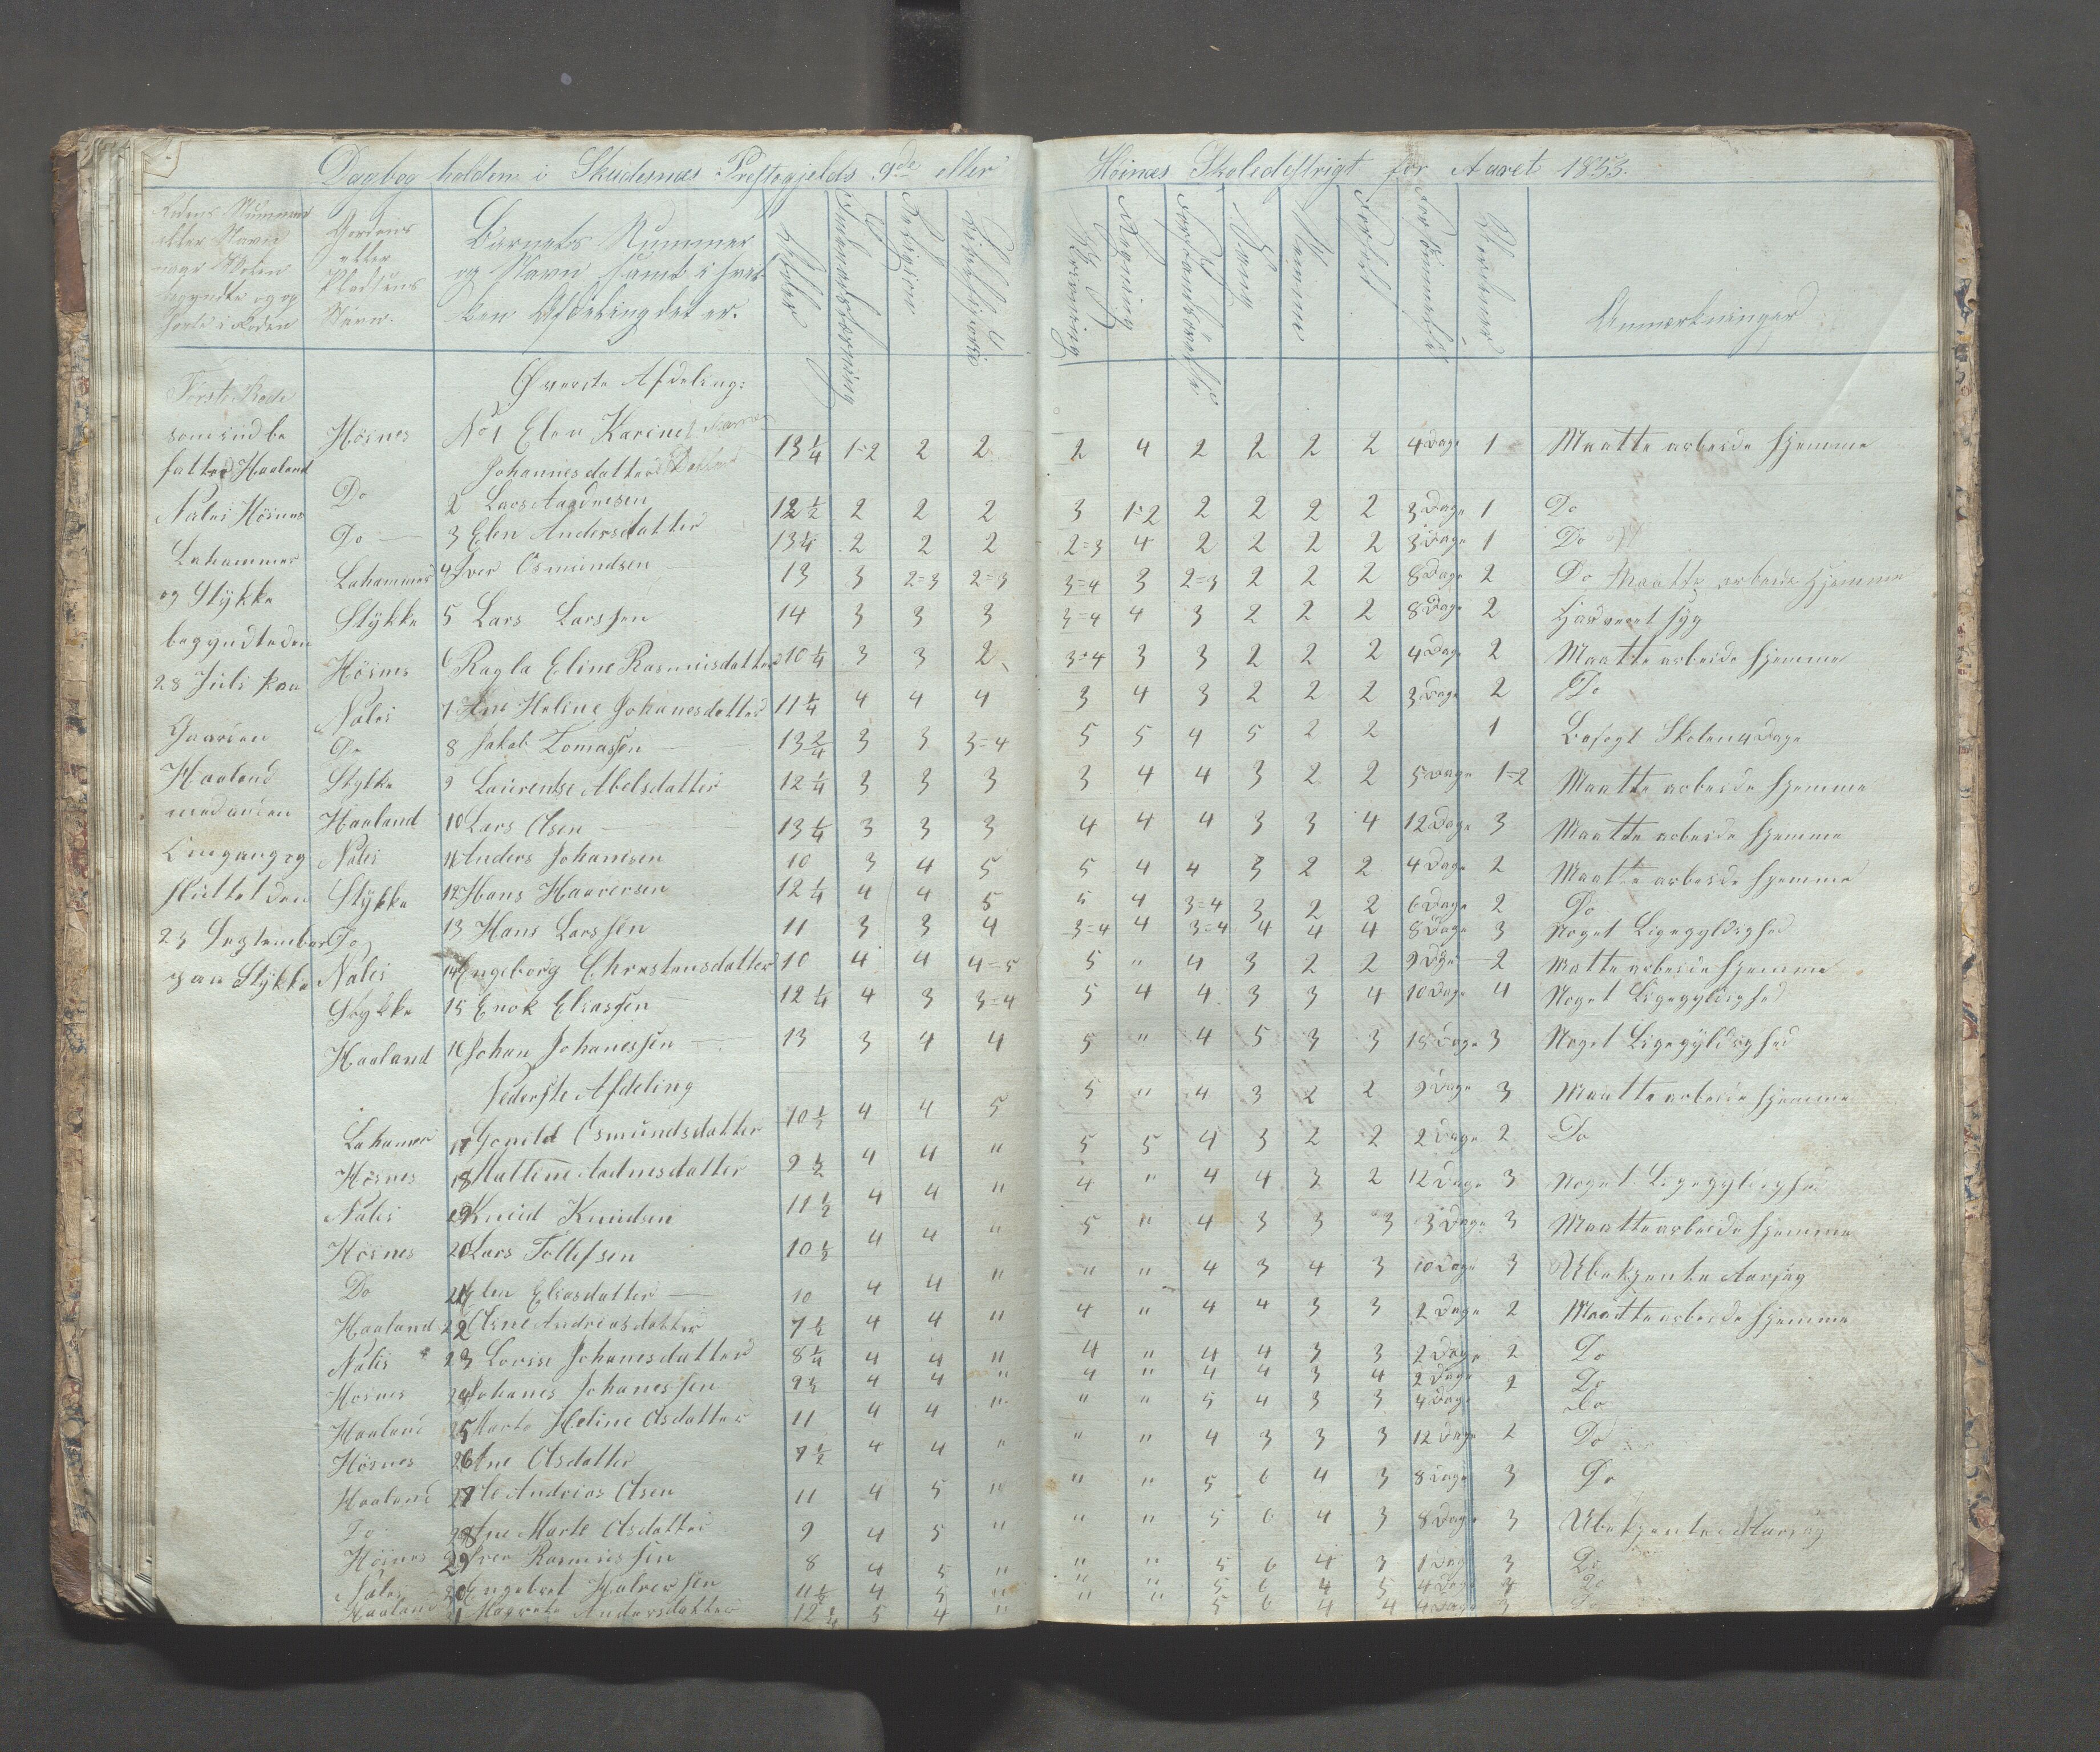 Dagbog holden i Skudesnæs Prestegjelds 9de eller Høinæs Skoledistrigt for Aaret 1853.
Rodens Nummer eller Navn naar Skolen begyndte og op hørte i Roden
Gardens eller Pladsens Navn.
Barnets Nummer og Navn samt i hvilken Afdeling det er.
Alder
Indenadslæsning
Religion
Bibelhistorie
Skrivning
Regning
Forstandsøvelse
Sang
Nemme
Forhold
Forsømmelse
Anmærkninger
Første Rode som indbefatter Haaland Nales Høines Lahammer og Stykke begyndte den 28 Juli paa Gaarden Haaland med anden Omgang og sluttet den 23 September paa Stykke
Øverste Afdeling:
Høines No 1 Elen Karine Johannesdatter 13 1/4 1=2 2 2 2 4 2 2 2 2 4 Dage 1 Maatte arbeide hjemme
Do 2 Lars Aadnesen 12 1/2 2 2 2 3 1=2 2 2 2 2 3 Dage 1 Do
Do 3 Elen Andersdatter 13 1/4 2 2 2 2=3 4 2 2 2 2 3 Dage 1 Do
Lahammer 4 Iver Osmundsen 13 3 2=3 2=3 3=4 3 2=3 2 2 2 8 Dage 2 Do Maatte arbeide hjemme
Stykke 5 Lars Larssen 14 3 3 3 3=4 4 3 2 2 2 8 Dage 2 Har veret syg
Høines 6 Ragla Eline Rasmusdatter 10 1/4 3 3 2 3=4 3 3 2 2 2 4 Dage 2 Maatte arbeide hjemme
Nales 7 Ane Heline Johanesdatter 11 1/4 4 4 4 3 4 3 2 2 2 3 Dage 2 Do
Do 8 Jakob Tomassen 13 2/4 3 3 3=4 5 5 4 5 2 2 1 Besøgt Skolen 4 Dage
Stykke 9 Laurense Abelsdatter 12 1/4 3 3 3 3 4 4 3 2 2 5 Dage 1=2 Maatte arbeide hjemme
Haaland 10 Lars Olsen 13 1/4 3 3 3 4 4 4 3 3 4 12 Dage 3 Maatte arbeide hjemme
Nales 11 Anders Johanesen 10 3 4 5 5 4 4 3 2 2 4 Dage 2 Maatte arbeide hjemme
Stykke 12 Hans Haaversen 12 1/4 4 4 5 5 4 3=4 3 2 2 6 Dage 2 Do
Do 13 Hans Larssen 11 3 3 4 3=4 4 3=4 4 4 4 8 Dage 3 Noget Ligegyldighed
Nales 14 Engeborg Chrestensdatter 10 4 4 4=5 5 " 4 3 2 2 9 Dage 2 Matte arbeide hjemme
Stykke 15 Enok Eliassen 12 1/4 4 3 3=4 5 4 4 3 3 4 10 Dage 4 Noget Ligegyldighed
Haaland 16 Johan Johanessen 13 3 4 4 5 " 4 5 3 3 15 Dage 3 Noget Ligegyldighed
Nederste Afdeling
Lahamer 17 Gonild Osmundsdatter 10 1/2 4 4 5 5 " 4 3 2 2 9 Dage 3 Maatte arbeide hjemme
Høines 18 Mallene Aadnesdatter 9 1/2 4 4 " 5 5 4 3 2 2 2 Dage 2 Do
Nales 19 Knud Knudsen 11 1/2 4 4 " 4 " 4 4 3 2 12 Dage 3 Noget Ligegyldighed
Høines 20 Lars Tollefsen 10 1/2 4 4 " 5 " 4 3 3 3 3 Dage 3 Maatte arbeide hjemme
Do 21 Elen Eliasdatter 10 4 4 " " " 4 3 4 3 10 Dage 3 Ubekjente Aarsag
Haaland 22 Olene Andreasdatter 7 1/2 4 4 " 4 " 4 4 3 3 2 Dage 2 Maatte arbeide hjemme
Nales 23 Lovise Johanesdatter 8 1/4 4 4 " 4 " 4 4 3 3 2 Dage 2 Do
Høines 24 Johanes Johanessen 9 4 4 " 4 " 4 4 3 4 2 Dage 2 Do
Haaland 25 Marte Heline Olsdatter 11 4 4 " " " 5 4 3 3 4 Dage Do
Høines 26 Ane Olsdatter 7 1/2 4 4 " " " 4 3 3 3 12 Dage 2 Do
Haaland 27 Ole Andreas Olsen 11 4 5 " " " 5 6 4 3 8 Dage 3 Do
Do 28 Ane Marte Olsdatter 9 4 5 " " " 5 6 4 3 8 Dage 3 Ubekjente Aarsag
Høines 29 Iver Rasmussen 8 4 5 " " " 5 6 4 3 1 Dag 3 Do
Nales 30 Engebret Halversen 11 1/2 4 5 " " " 5 6 4 5 4 Dage 3 Do
Haaland 31 Magrete Andersdatter 12 1/4 5 4 " " " 5 6 4 4 4 Dage 3 Do